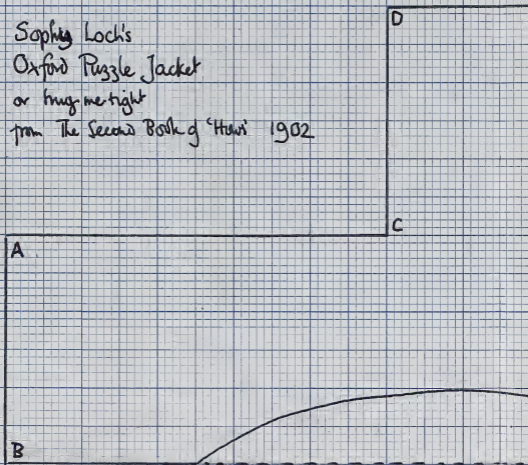 Sophy Loch's
Oxford Puzzle Jacket
or hug-me-tight
from The Second Book of 'Hows' 1902
D
C
A
B